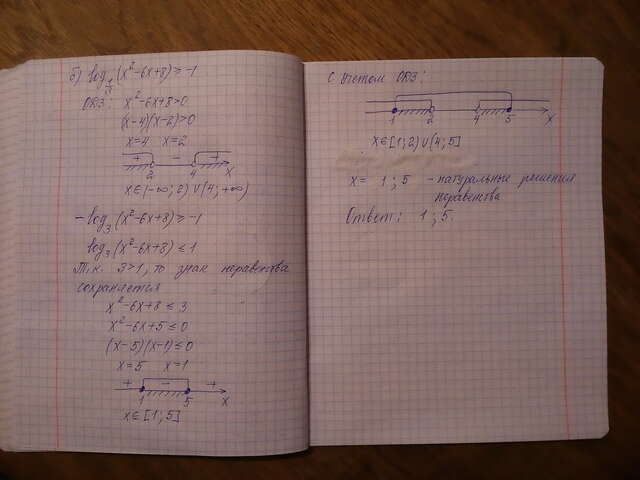 б) log₁/₃(x²-6x+8) ≥ -1
ОДЗ: x²-6x+8>0
(x-4)(x-2)>0
x=4 x=2
+ - +
2 4 x
x∈(-∞; 2) ∪ (4; +∞)
-log₃(x²-6x+8) ≥ -1
log₃(x²-6x+8) ≤ 1
Т.к. 3>1, то знак неравенства
сохраняется
x²-6x+8 ≤ 3
x²-6x+5 ≤ 0
(x-5)(x-1) ≤ 0
x=5 x=1
+ - +
1 5 x
x∈[1; 5]
С учётом ОДЗ:
1 2 4 5 x
x∈[1; 2) ∪ (4; 5]
x = 1; 5 - натуральные решения
неравенства
Ответ: 1; 5.